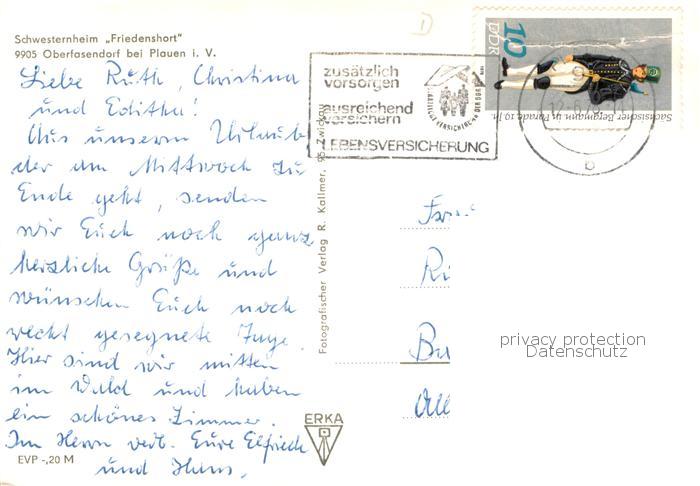 Schwesternheim „Friedenshort"
9905 Oberfasendorf bei Plauen i. V.
Liebe Ruth, Christina
und Editha!
Aus unserm Urlaub
der am Mittwoch zu
Ende geht, senden
wir Euch noch ganz
herzliche Grüße und
wünschen Euch noch
recht gesegnete Tage.
Hier sind wir mitten
im Wald und haben
ein schönes Zimmer.
Im Herrn verb. Eure Elfriede
und Hans.
EVP -,20 M
Fotografischer Verlag R. Kallmer, 95 Zwickau
ERKA
zusätzlich
vorsorgen
ausreichend
versichern
LEBENSVERSICHERUNG
STAATLICHE VERSICHERUNG DER DDR
10
DDR
Sächsischer Bergmann in Parade, 19. Jh.
b
Fam
Ri
Ba
privacy protection
Datenschutz